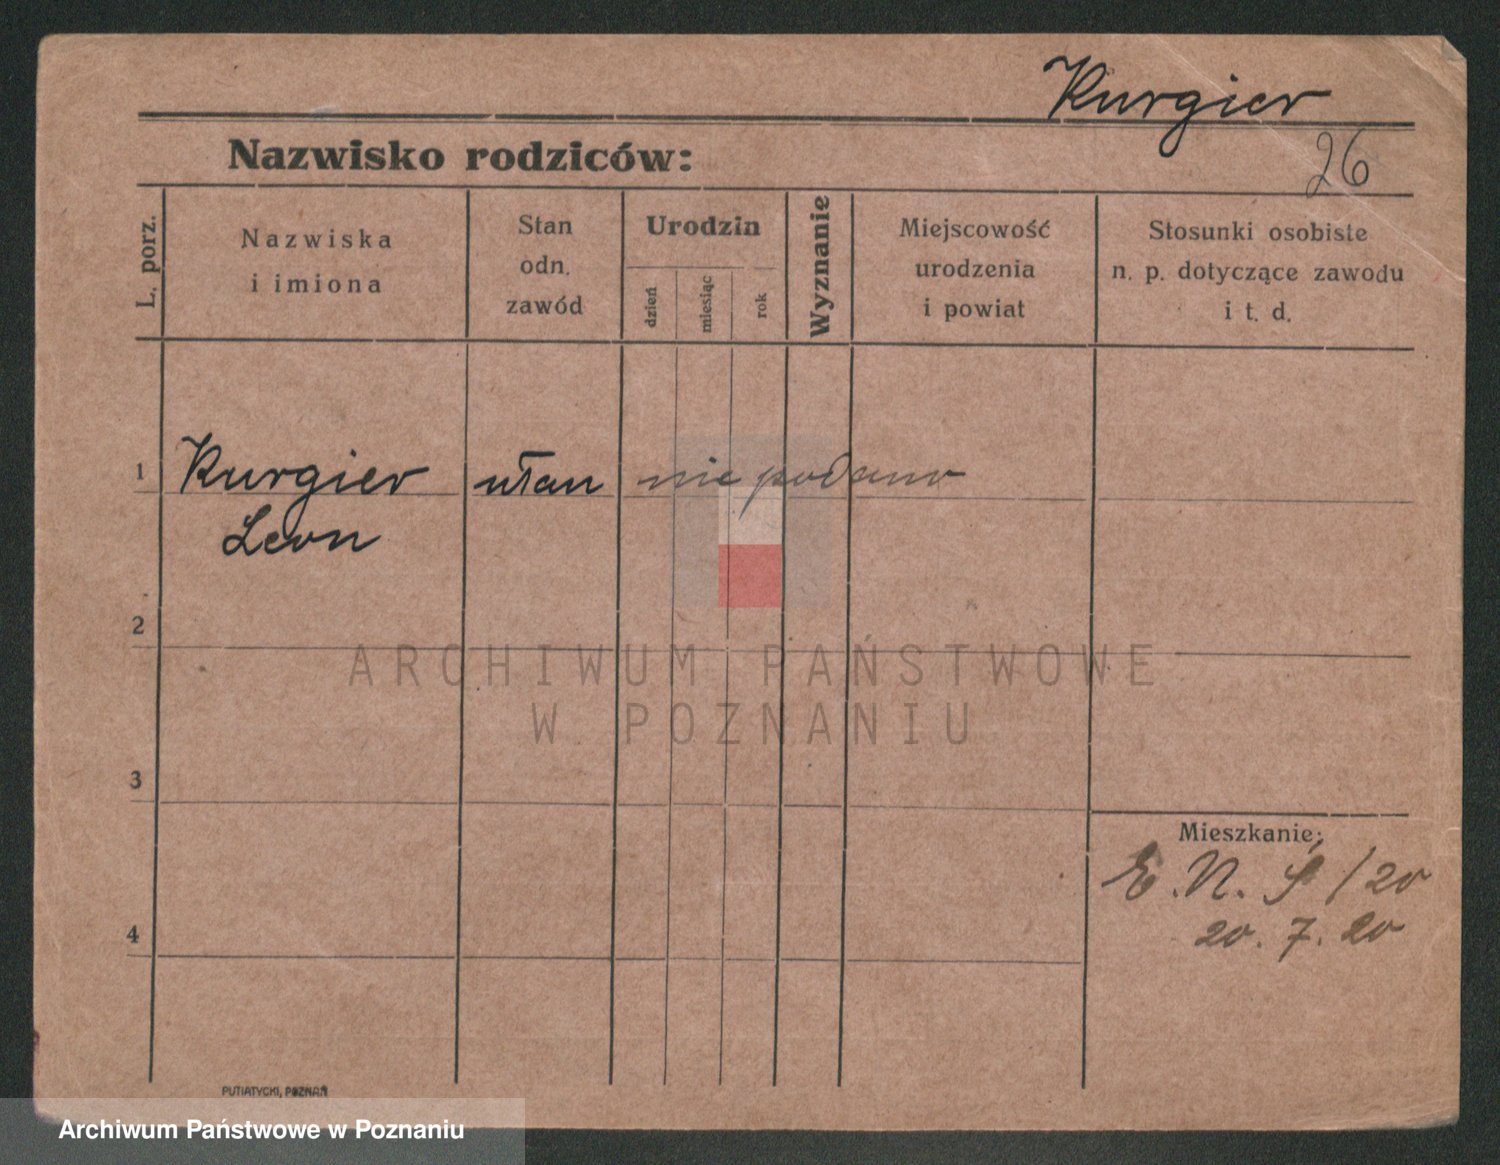 Kurgier
26
Nazwisko rodziców:
L. porz.
Nazwiska
i imiona
Stan
odn.
zawód
Urodzin
dzień
miesiąc
rok
Wyznanie
Miejscowość
urodzenia
i powiat
Stosunki osobiste
n. p. dotyczące zawodu
i t. d.
1 Kurgier ułan nie podano
Leon
2
ARCHIWUM PAŃSTWOWE
W POZNANIU
3
Mieszkanie:
E. N. /20
4
20. 7. 20
PUTIATYCKI, POZNAŃ
Archiwum Państwowe w Poznaniu